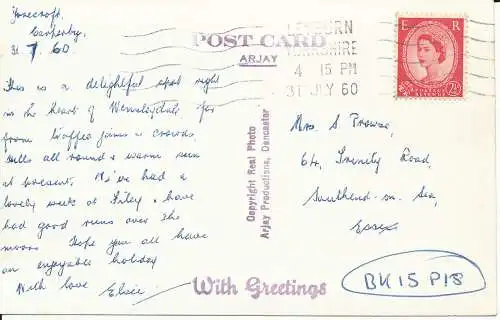 Carperby,
31 7. 60
This is a delightful spot right
in the heart of Wensleydale far
from traffic jams & crowds
hills all round & warm sun
at present. We've had a
lovely week at Filey & have
had good runs over the
moors. Hope you all have
an enjoyable holiday
With love Elsie
POST CARD
ARJAY
LEYBURN
YORKSHIRE
4 15 PM
31 JLY 60
E R
2½
Copyright Real Photo
Arjay Productions, Doncaster
Mrs S. Prowse,
64, Trinity Road,
Southend-on-Sea,
Essex
BK15 P18
With Greetings